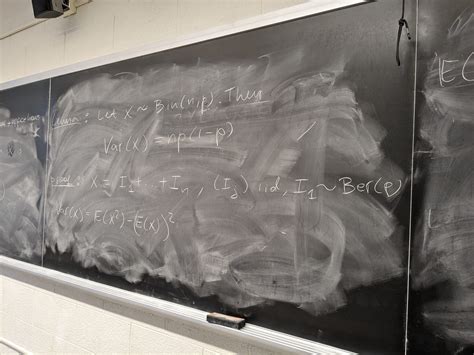 Let X ~ Bin(n,p). Then
Var(X) = np(1-p)
proof: X = I₁+...+Iₙ, (Iⱼ) iid, I₁ ~ Ber(p)
Var(X) = E(X²) - (E(X))²
E(X